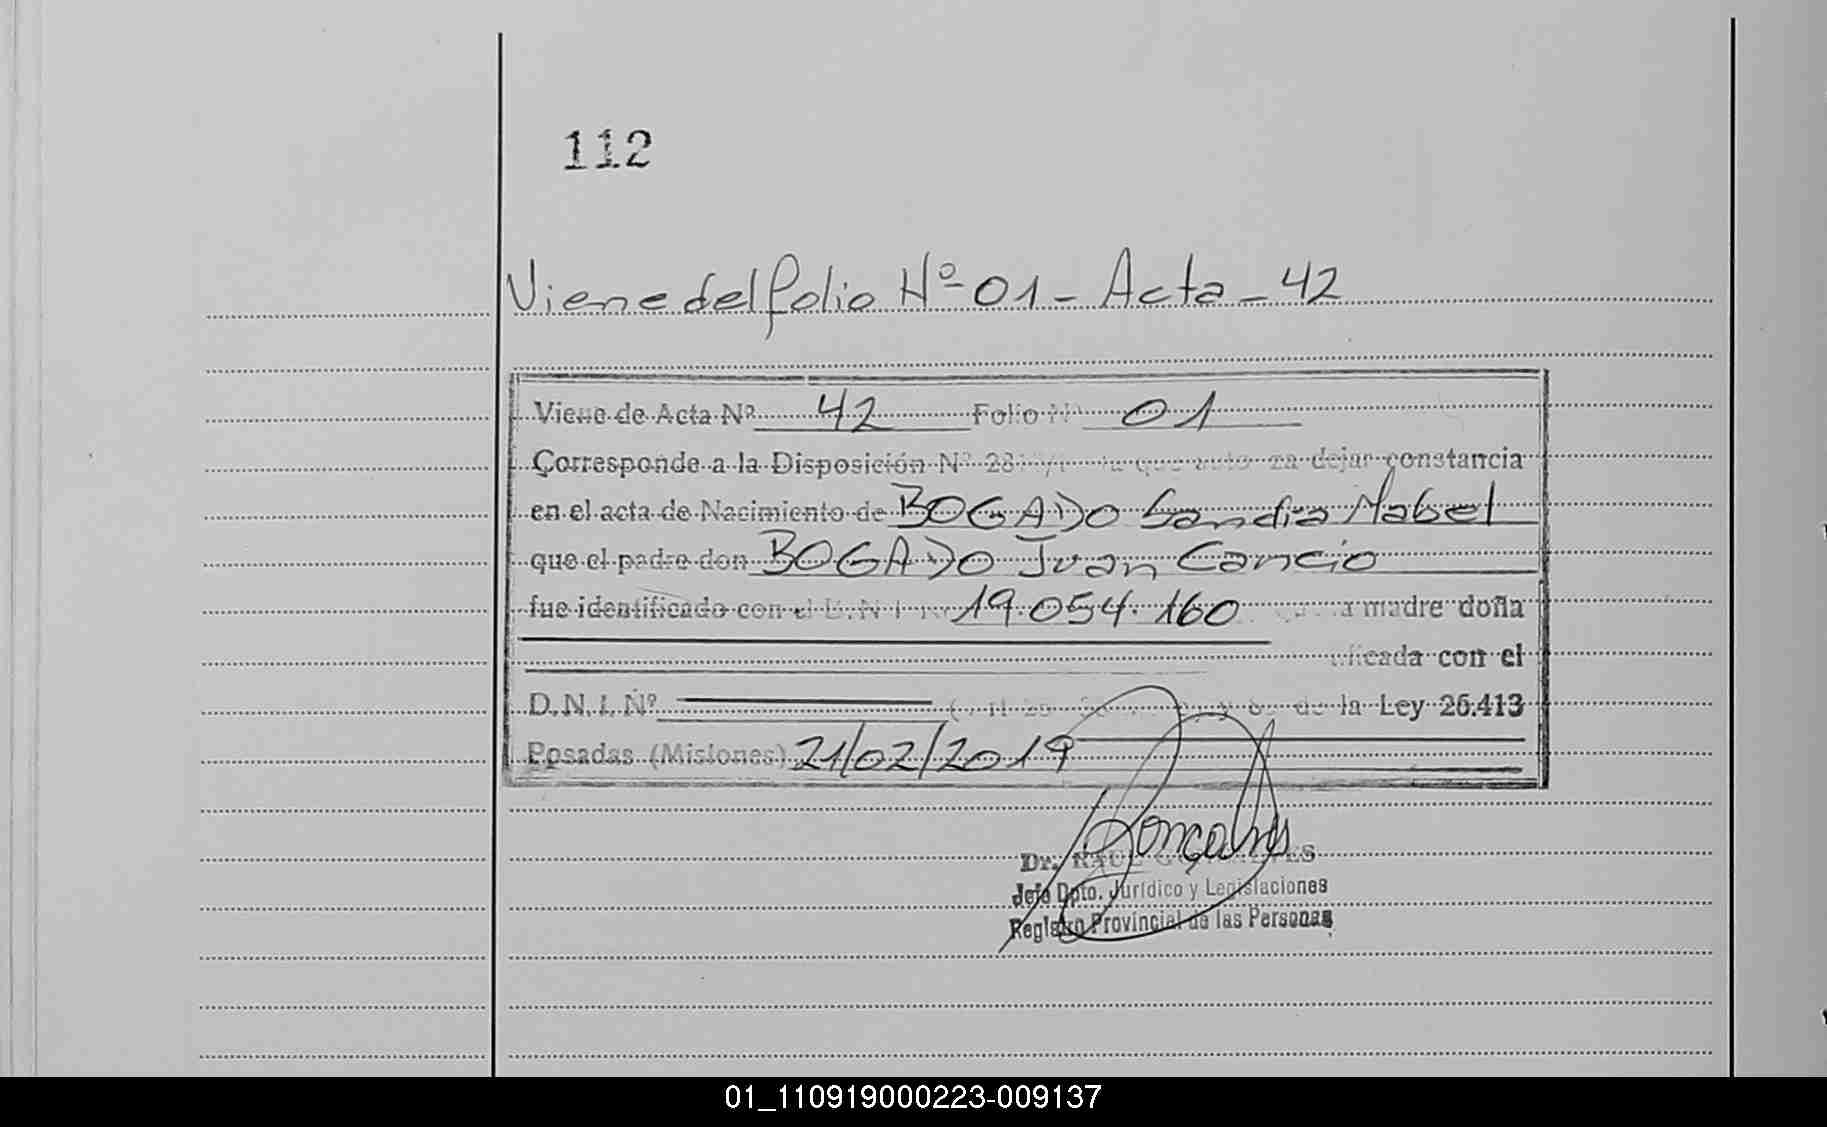 112
Viene del folio Nº 01 - Acta - 42
Viene de Acta Nº 42 Folio Nº 01
Corresponde a la Disposición Nº dejar constancia
en el acta de Nacimiento de BOGADO Sandra Mabel
que el padre don BOGADO Juan Cancio
fue identificado con el D.N.I. Nº 19.054.160 la madre doña
con el
D.N.I. Nº de la Ley 26.413
Posadas (Misiones) 21/02/2019
Dr. RAUL GONCALVES
Jefe Dpto. Jurídico y Legislaciones
Registro Provincial de las Personas
01_110919000223-009137